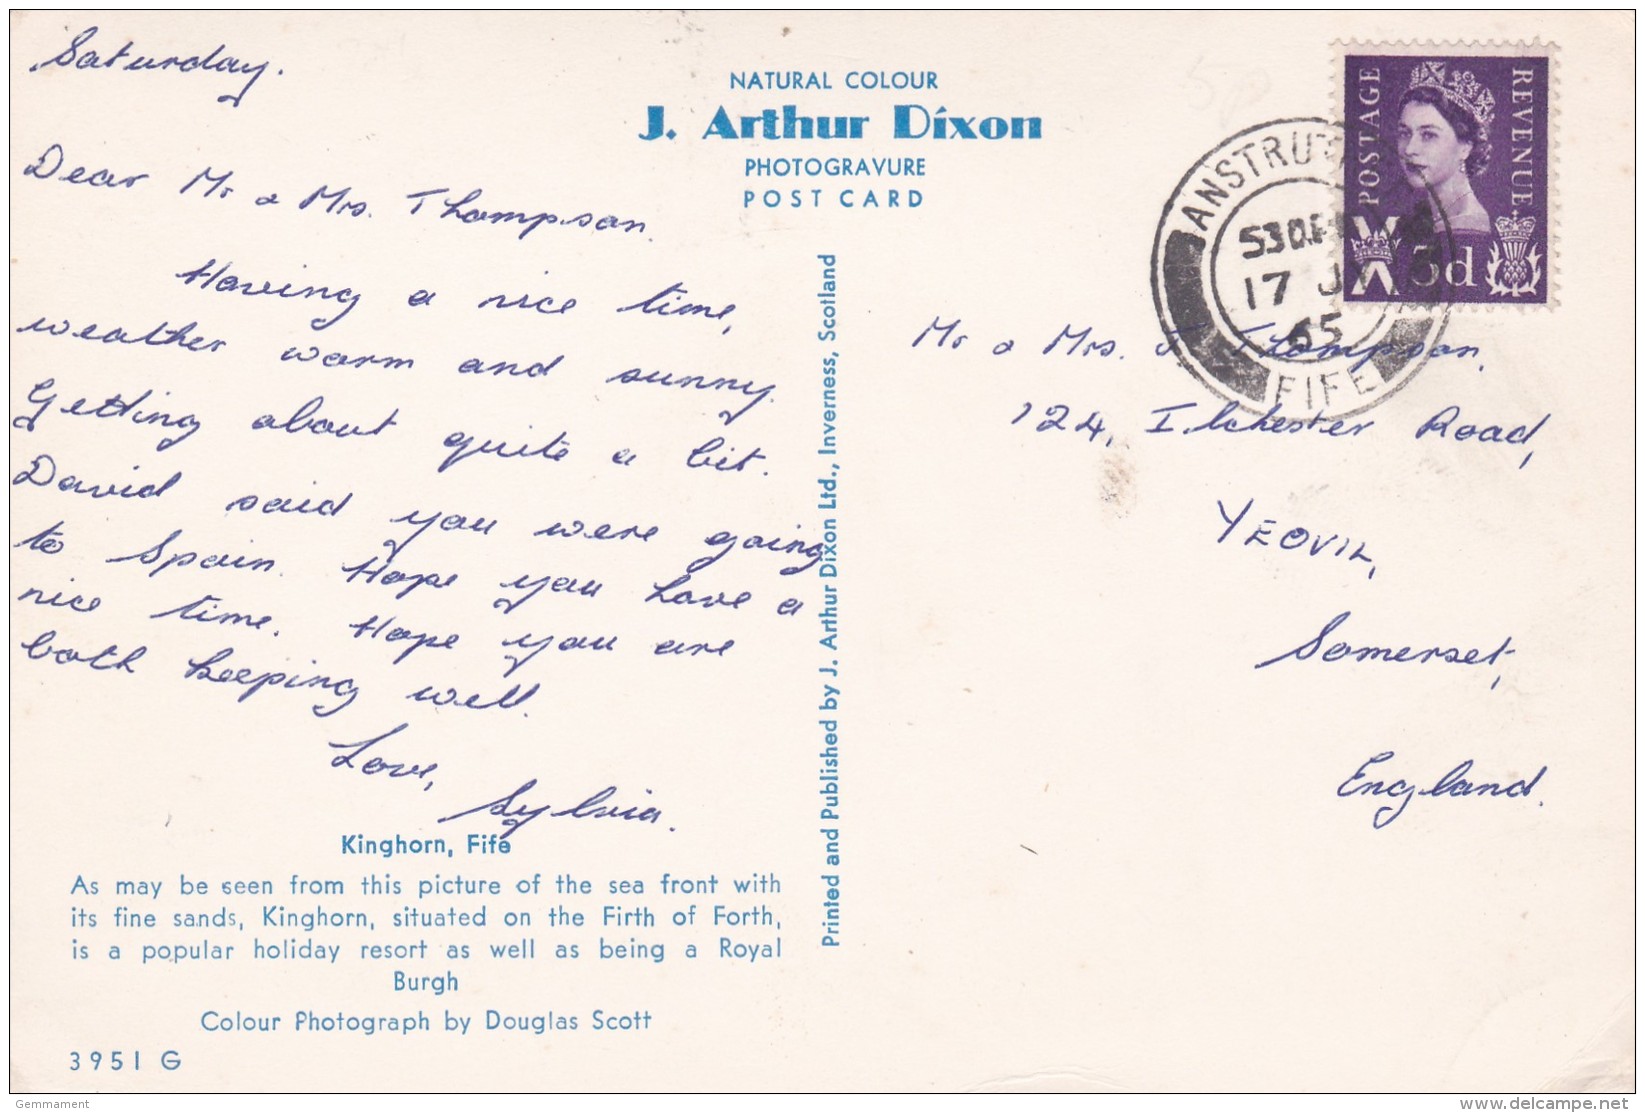 Saturday.
Dear Mr & Mrs. Thompson.
Having a nice time,
weather warm and sunny.
Getting about quite a bit.
David said you were going
to Spain. Hope you have a
nice time. Hope you are
both keeping well.
Love,
Sylvia.
Kinghorn, Fife
As may be seen from this picture of the sea front with
its fine sands, Kinghorn, situated on the Firth of Forth,
is a popular holiday resort as well as being a Royal
Burgh
Colour Photograph by Douglas Scott
3951 G
NATURAL COLOUR
J. Arthur Dixon
PHOTOGRAVURE
POST CARD
Printed and Published by J. Arthur Dixon Ltd., Inverness, Scotland
POSTAGE
REVENUE
3d
17
65
FIFE
Mr & Mrs. J Thompson,
124, Ilchester Road,
YEOVIL,
Somerset,
England.
Gemmament
delcampe.net